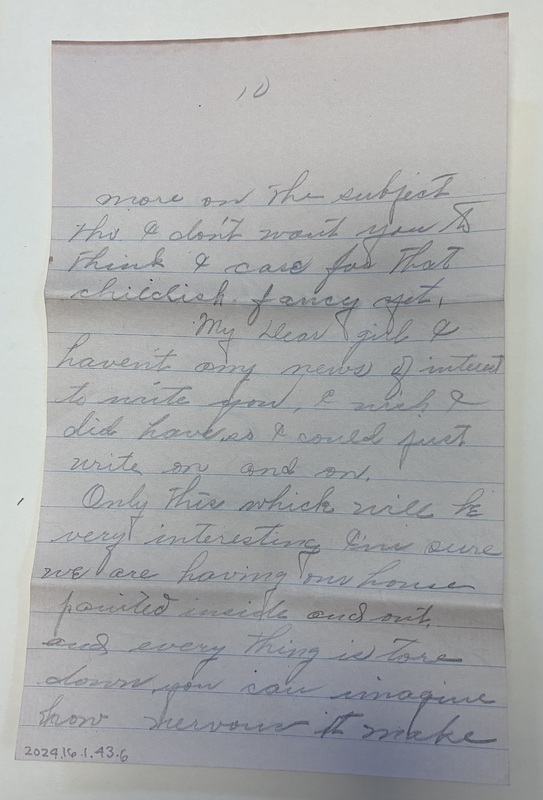 10
more on the subject
tho I don't want you to
think I care for that
childish fancy yet.
My Dear girl I
havent any news of interest
to write you, I wish I
did have, so I could just
write on and on.
Only this which will be
very interesting I'm sure
we are having our house
painted inside and out,
and every thing is tore
down you can imagine
how nervous it make
2024.16.1.43.6